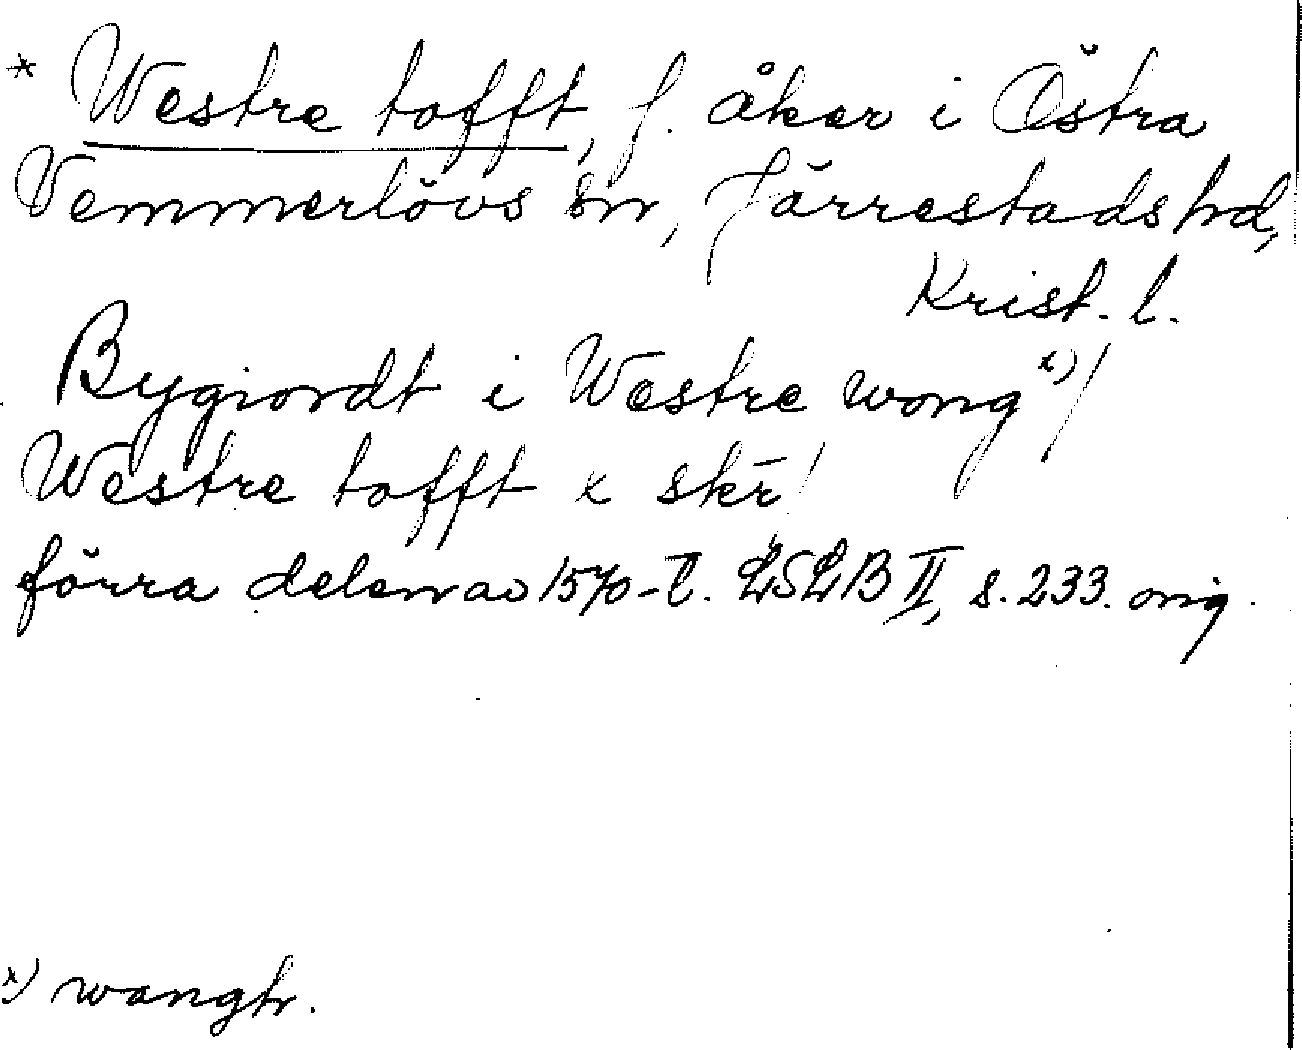 * Westre tofft, f. åker i Östra
Vemmerlövs sn, Järrestads hd,
Krist. l.
Bygiordt i Westre wong x)/
Westre tofft x skr̄/
förra delen av 1570-t. LSLB II, s. 233. orig.
x) wangh.